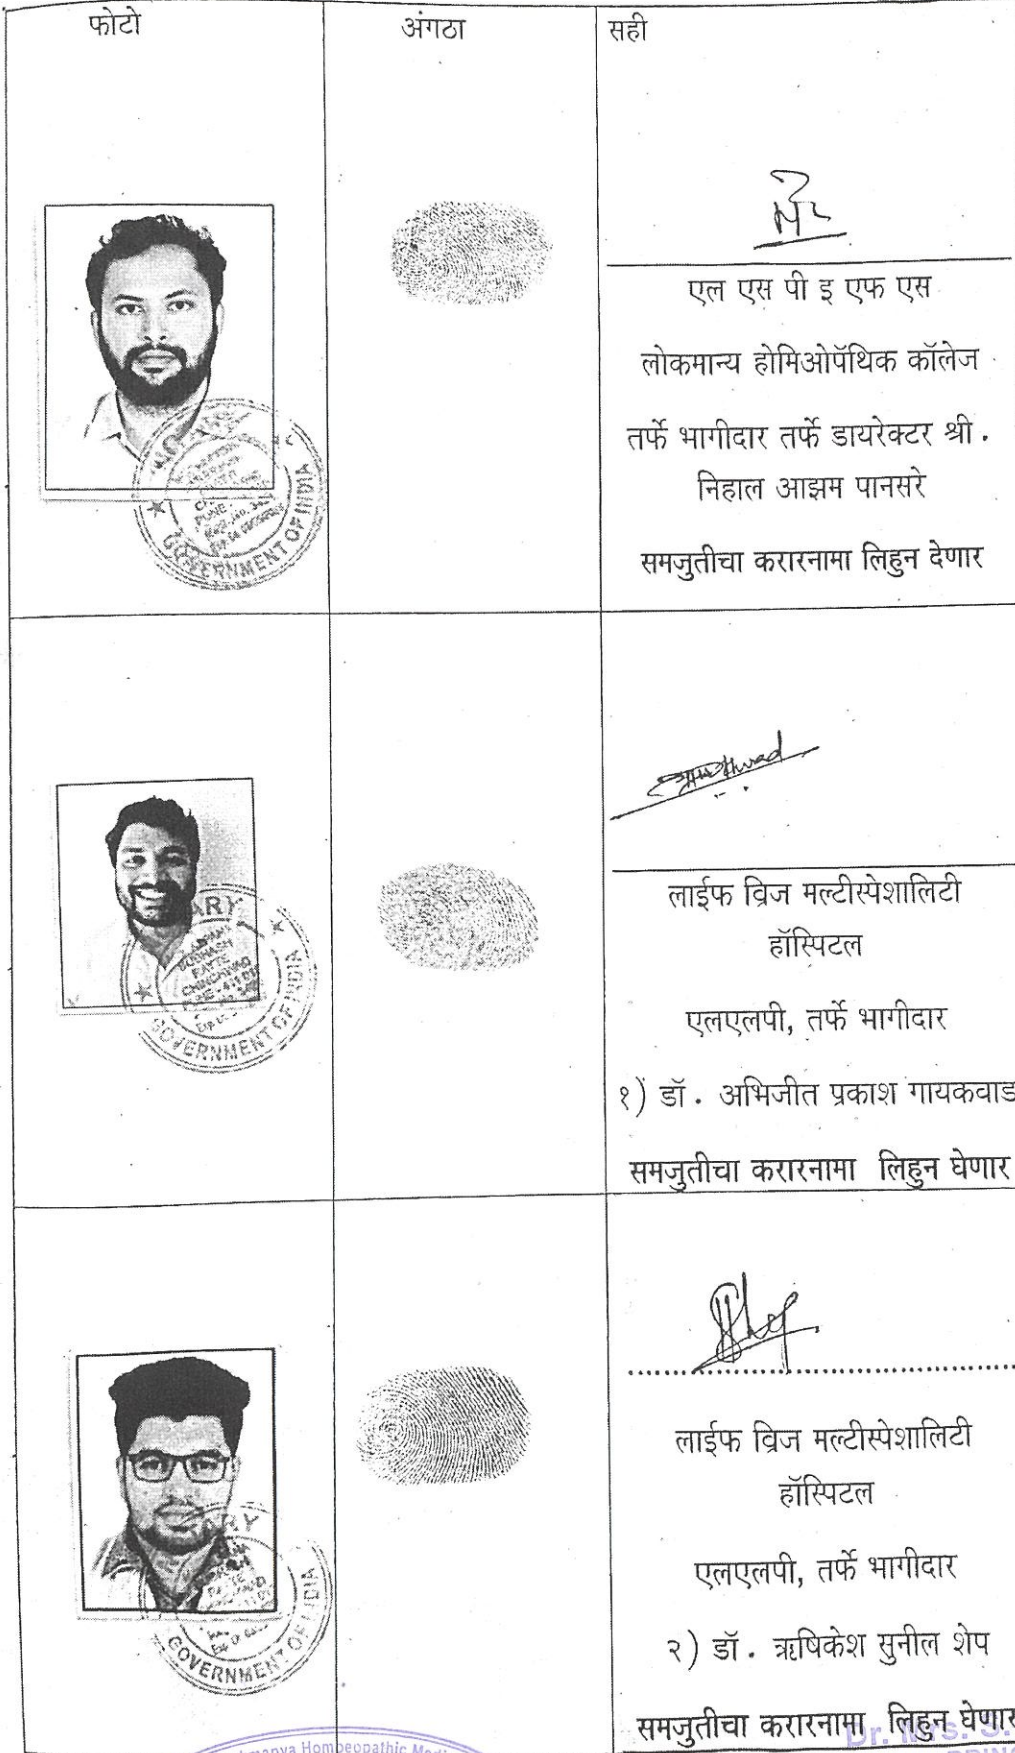 फोटो
अंगठा
सही
एल एस पी इ एफ एस
लोकमान्य होमिओपॅथिक कॉलेज
तर्फे भागीदार तर्फे डायरेक्टर श्री .
निहाल आझम पानसरे
समजुतीचा करारनामा लिहुन देणार
GOVERNMENT OF INDIA
लाईफ व्रिज मल्टीस्पेशालिटी
हॉस्पिटल
एलएलपी, तर्फे भागीदार
१) डॉ . अभिजीत प्रकाश गायकवाड
समजुतीचा करारनामा लिहुन घेणार
SUBHASH
CHINCHWAD
GOVERNMENT OF INDIA
लाईफ व्रिज मल्टीस्पेशालिटी
हॉस्पिटल
एलएलपी, तर्फे भागीदार
२) डॉ . ऋषिकेश सुनील शेप
समजुतीचा करारनामा लिहुन घेणार
GOVERNMENT OF INDIA
Homoeopathic
Dr. Mrs. S.